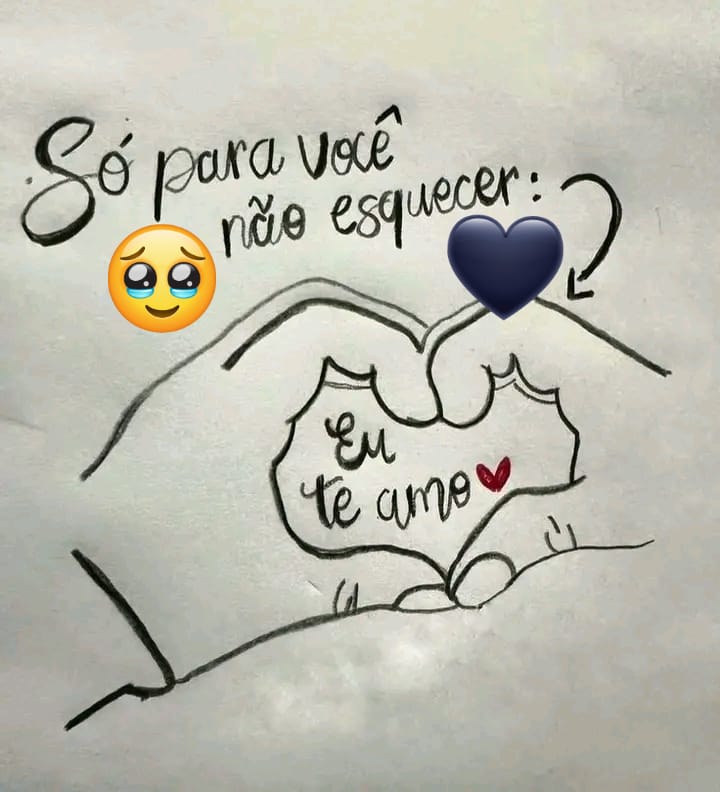 Só para você
não esquecer:
Eu
te amo